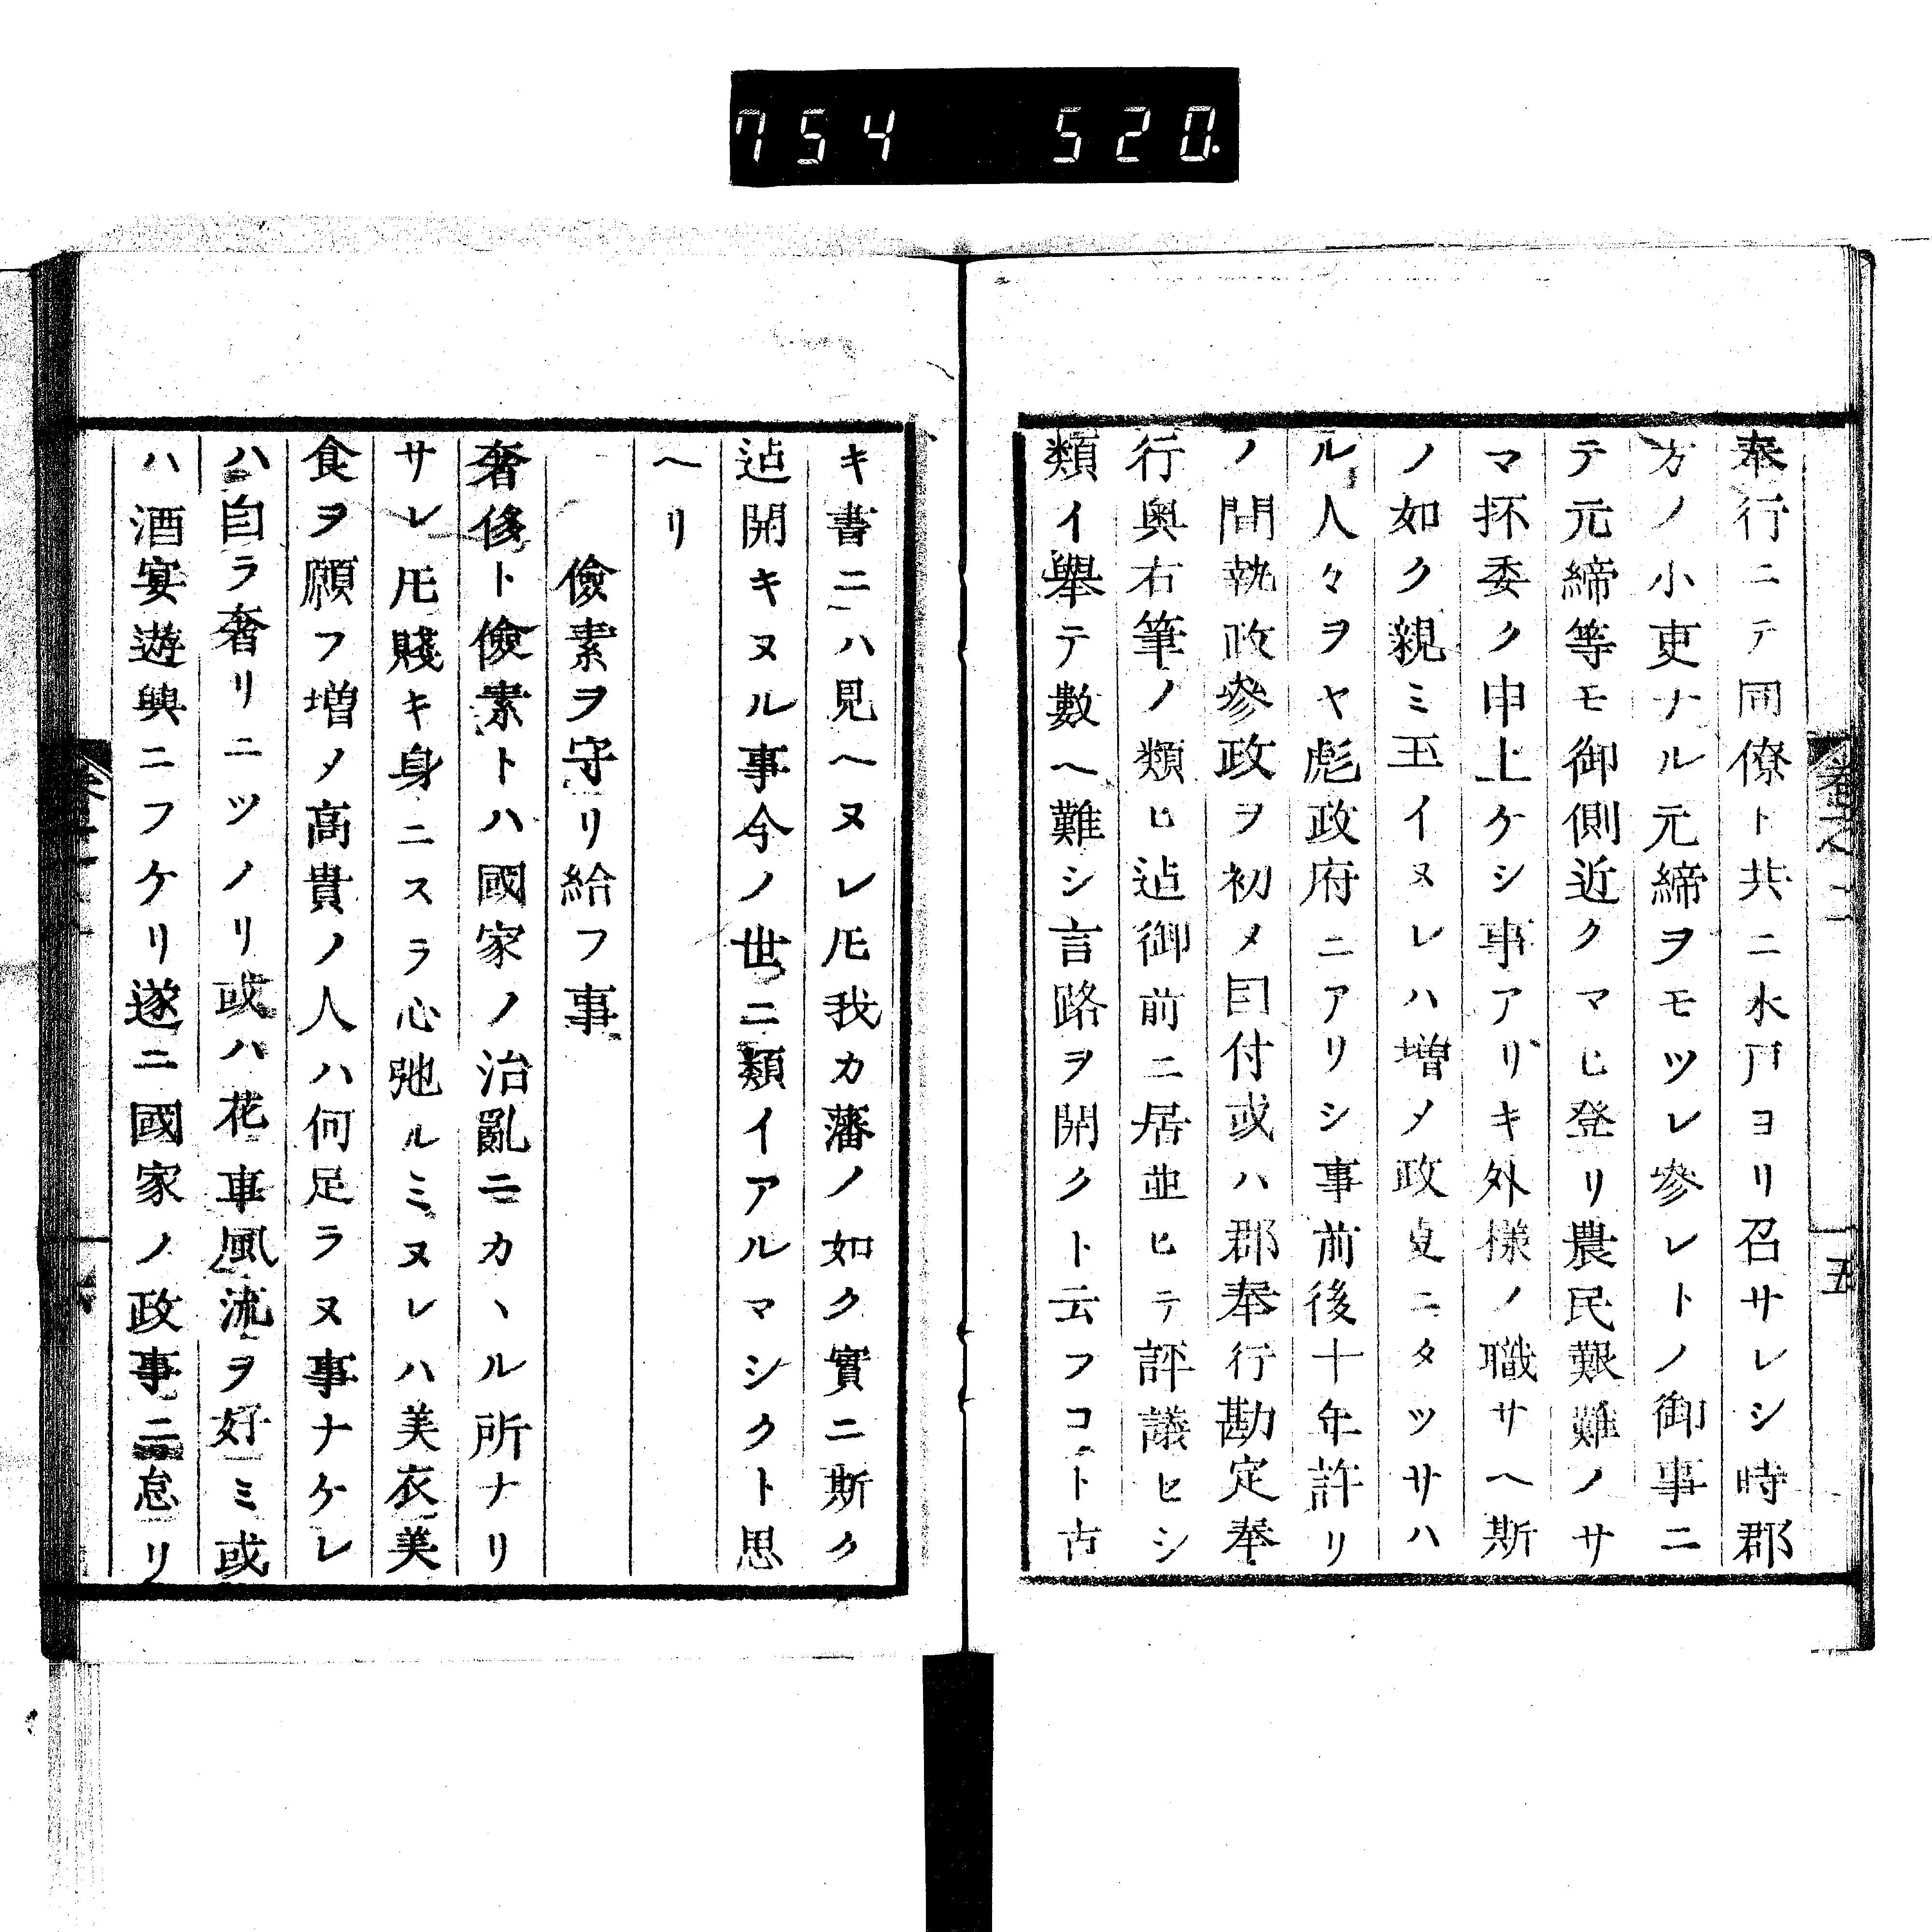 754 520.
奉行ニテ同僚ト共ニ水戸ヨリ召サレシ時郡
方ノ小吏ナル元締ヲモツレ參レトノ御事ニ
テ元締等モ御側近クマヒ登リ農民艱難ノサ
マ抔委ク申上ケシ事アリキ外様ノ職サヘ斯
ノ如ク親ミ玉イヌレハ増メ政叓ニタツサハ
ル人々ヲヤ彪政府ニアリシ事前後十年許リ
ノ間執政參政ヲ初メ目付或ハ郡奉行勘定奉
行奥右筆ノ類ヒ迠御前ニ居並ヒテ評議ヒシ
類イ舉テ數ヘ難シ言路ヲ開クト云フコト古
五
キ書ニハ見ヘヌレ𪜈我カ藩ノ如ク實ニ斯ク
迠開キヌル事今ノ世ニ類イアルマシクト思
ヘリ
儉素ヲ守リ給フ事
奢侈ト儉素トハ國家ノ治亂ニカヽル所ナリ
サレ𪜈賤キ身ニスラ心弛ルミヌレハ美衣美
食ヲ願フ増メ高貴ノ人ハ何足ラヌ事ナケレ
ハ自ラ奢リニツノリ或ハ花車風流ヲ好ミ或
ハ酒宴遊興ニフケリ遂ニ國家ノ政事ニ怠リ